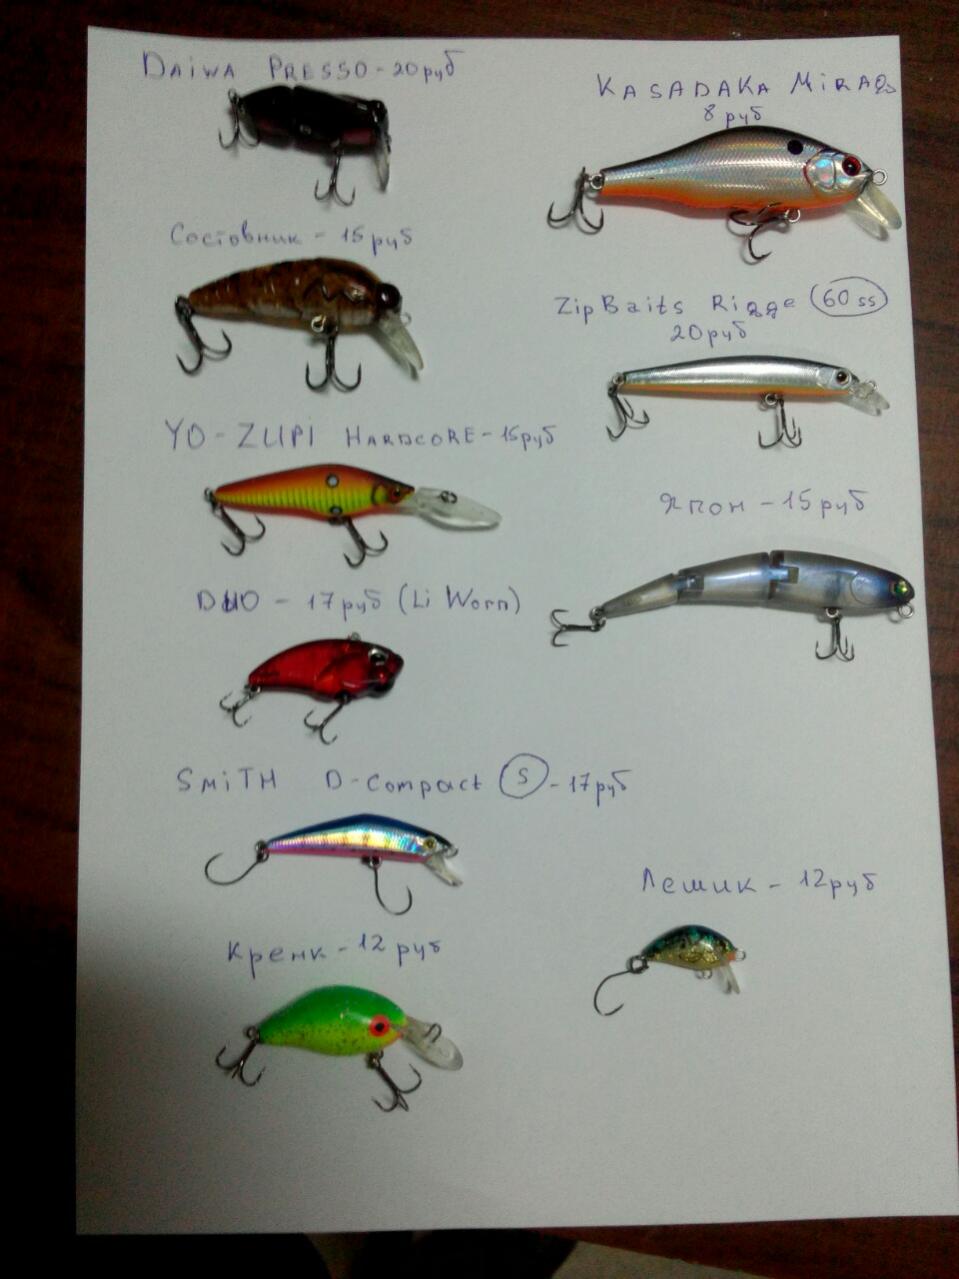 Daiwa Presso - 20 руб
Kasadaka Mirage
8 руб
Состовник - 15 руб
ZipBaits Rigge 60 ss
20 руб
YO-ZURI Hardcore - 15 руб
Япон - 15 руб
DUO - 17 руб (Li Worn)
Smith D-Compact S - 17 руб
Лешик - 12 руб
Кренк - 12 руб